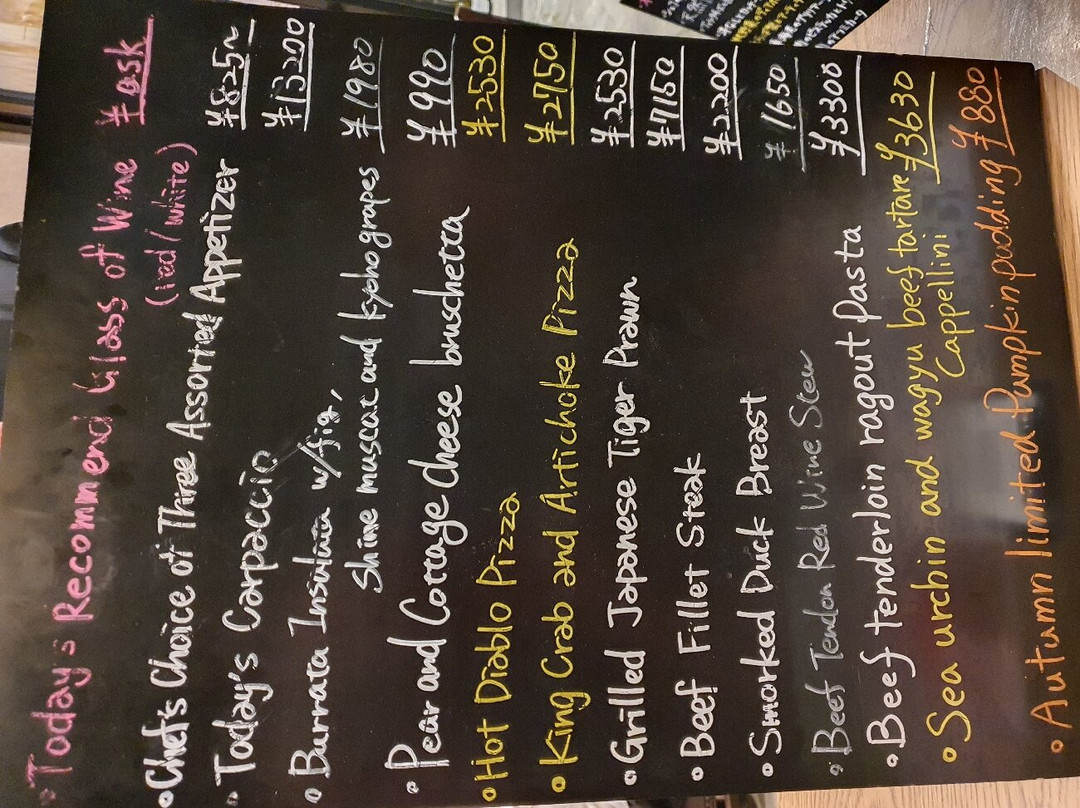 • Today's Recommend Glass of Wine ¥ask
(red/white)
• Chef's Choice of Three Assorred Appetizer ¥825~
• Today's Carpaccio ¥13200
• Burrata Insulina w/fig, ¥1980
Shine muscat and kyoho grapes
• Pear and Cottage cheese bruschetta ¥990
• Hot Diablo Pizza ¥2530
• King Crab and Artichoke Pizza ¥2750
• Grilled Japanese Tiger Prawn ¥2530
• Beef Fillet Steak ¥7150
• Smorked Duck Breast ¥2200
• Beef Tendon Red Wine Stew ¥1650
• Beef tenderloin ragout pasta ¥3300
• Sea urchin and wagyu beef tartare ¥3630
Cappellini
• Autumn limited Pumpkin pudding ¥880